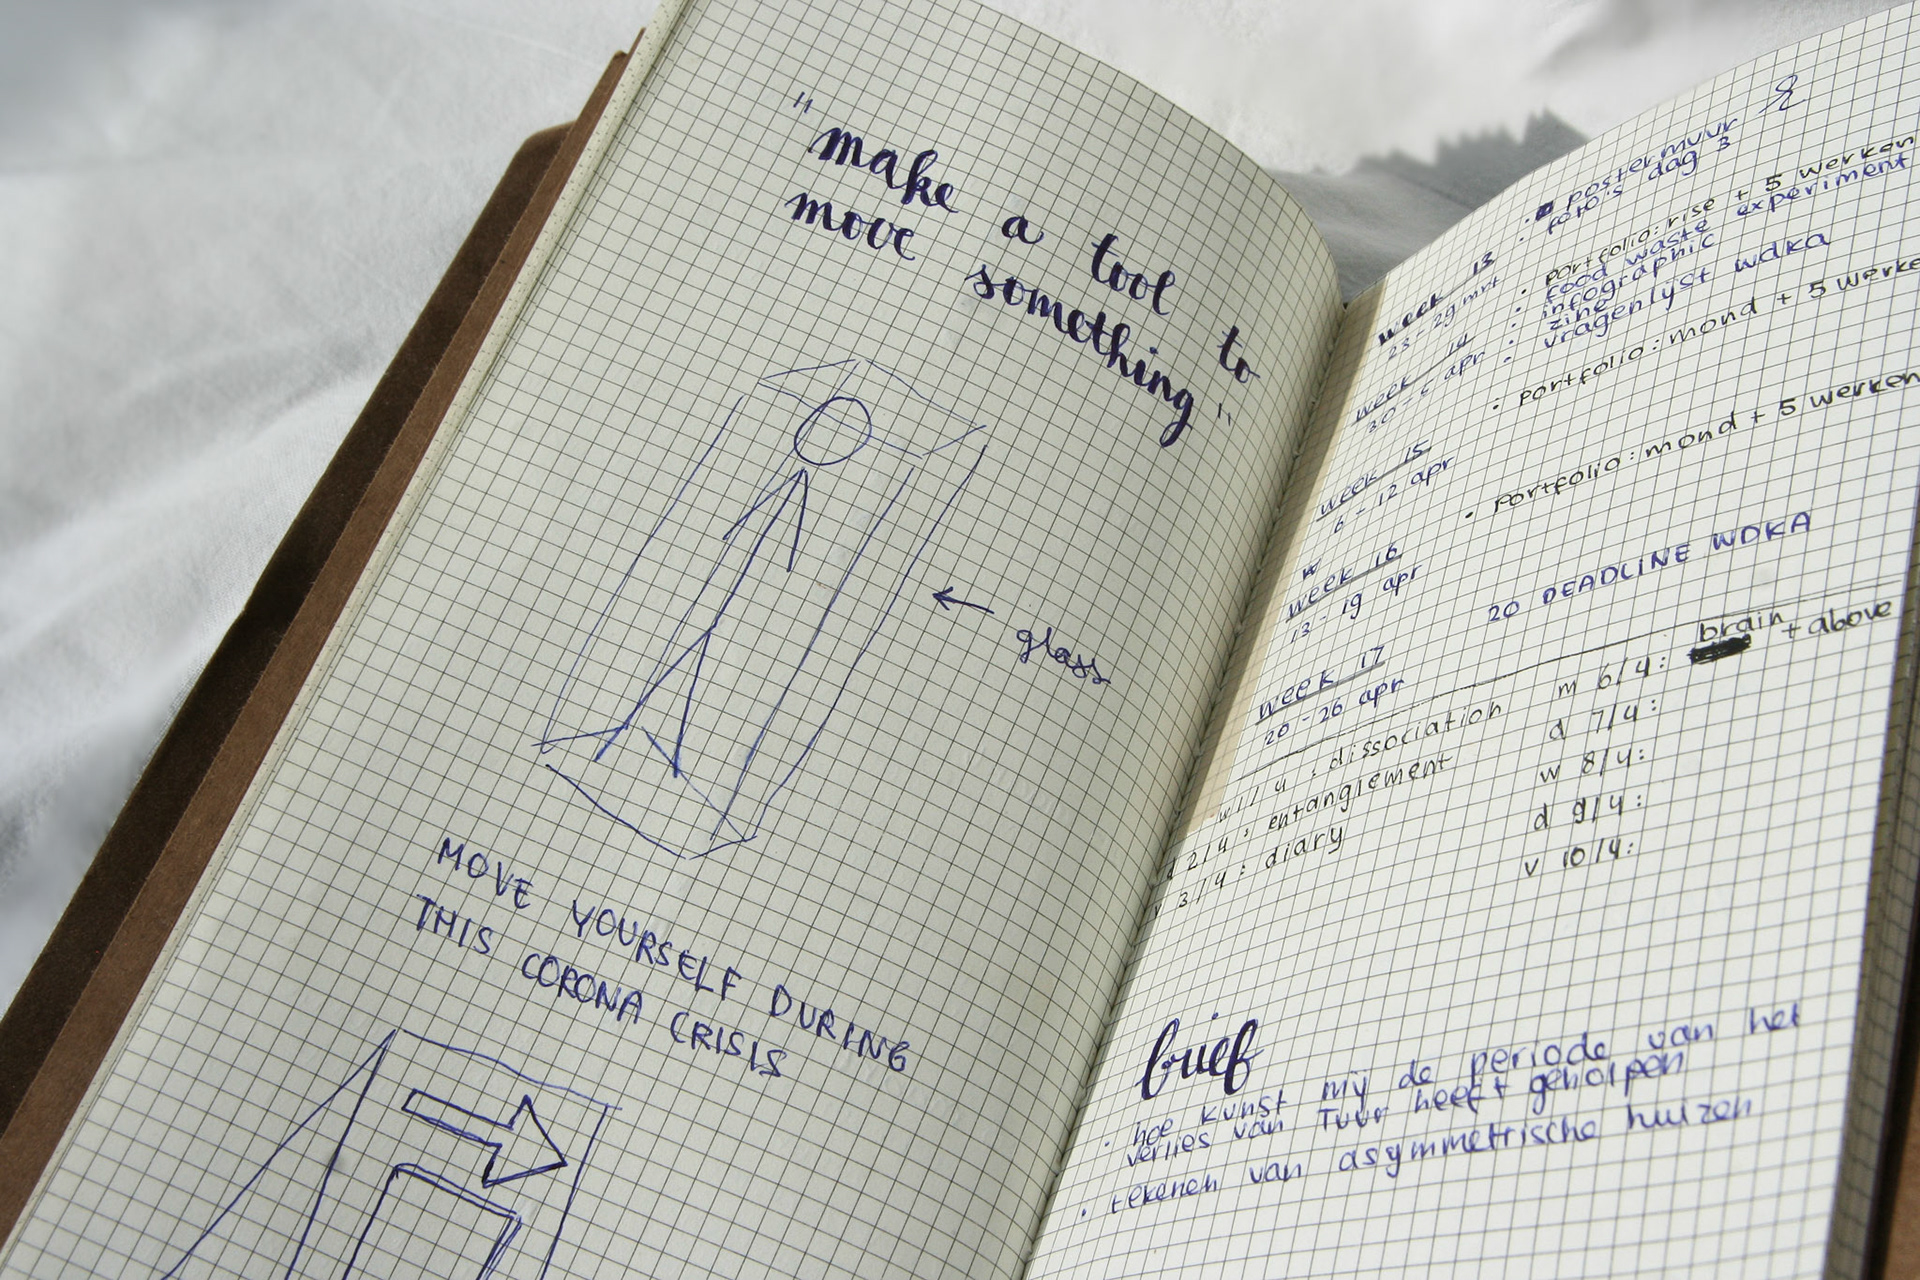 "make a tool to
move something"
glass
MOVE YOURSELF DURING
THIS CORONA CRISIS
week 13
23 - 29 mrt
· postermuur
· foto's dag 3
week 14
30 - 5 apr
· portfolio: rise + 5 werken
· food waste experiment
· infographic
· zine
· vragenlijst wdka
week 15
6 - 12 apr
· portfolio: mond + 5 werke
w
week 16
13 - 19 apr
· portfolio: mond + 5 werken
week 17
20 - 26 apr
20 DEADLINE WDKA
w 1/4 : dissociation
d 2/4 : entanglement
v 3/4 : diary
m 6/4: brain + above
d 7/4:
w 8/4:
d 9/4:
v 10/4:
brief
· hoe kunst mij de periode van het
verlies van Tuur heeft geholpen
· tekenen van asymmetrische huizen